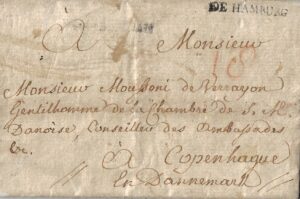 DE HAMBURG
A Monsieur
Monsieur Moussoni de Verrayon
Gentilhomme de la Chambre de S. M.
Danoise, Conseiller des Ambassades
&c.
A Copenhague
En Dannemark